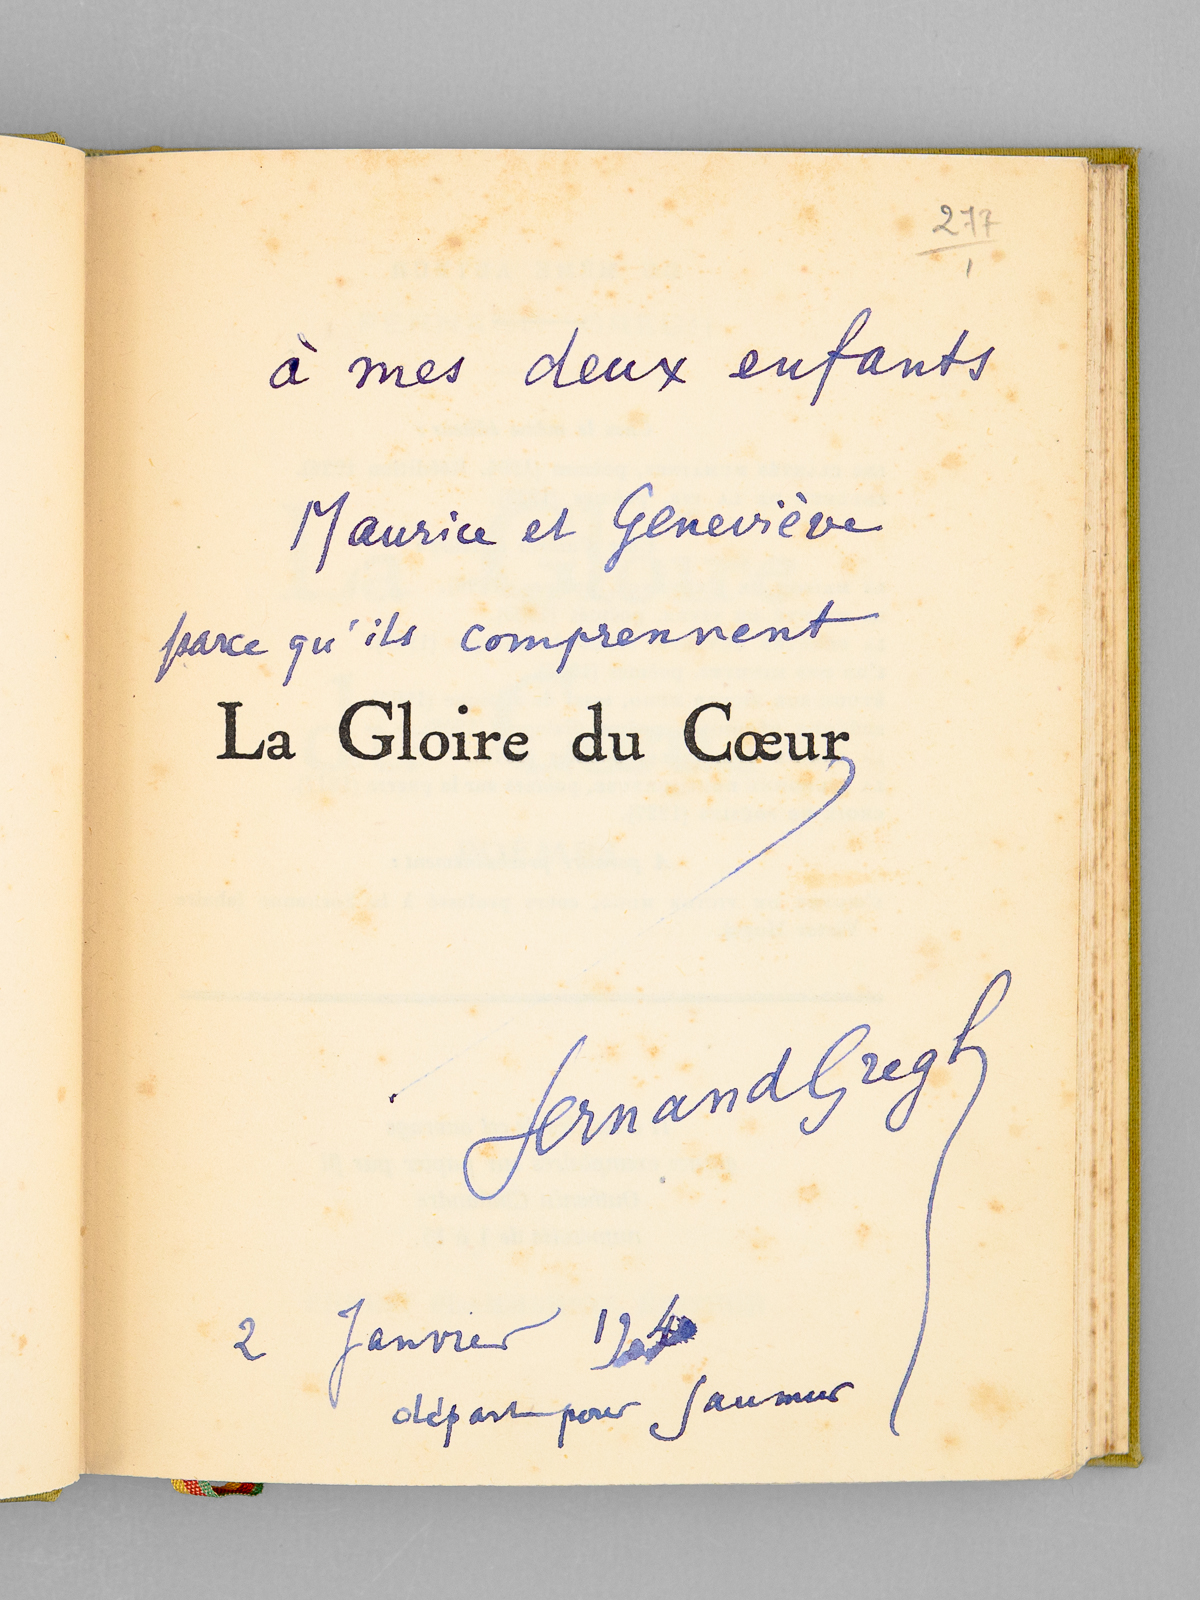 277
1
à mes deux enfants
Maurice et Geneviève
parce qu'ils comprennent
La Gloire du Cœur
Fernand Gregh
2 Janvier 1940
départ pour Saumur